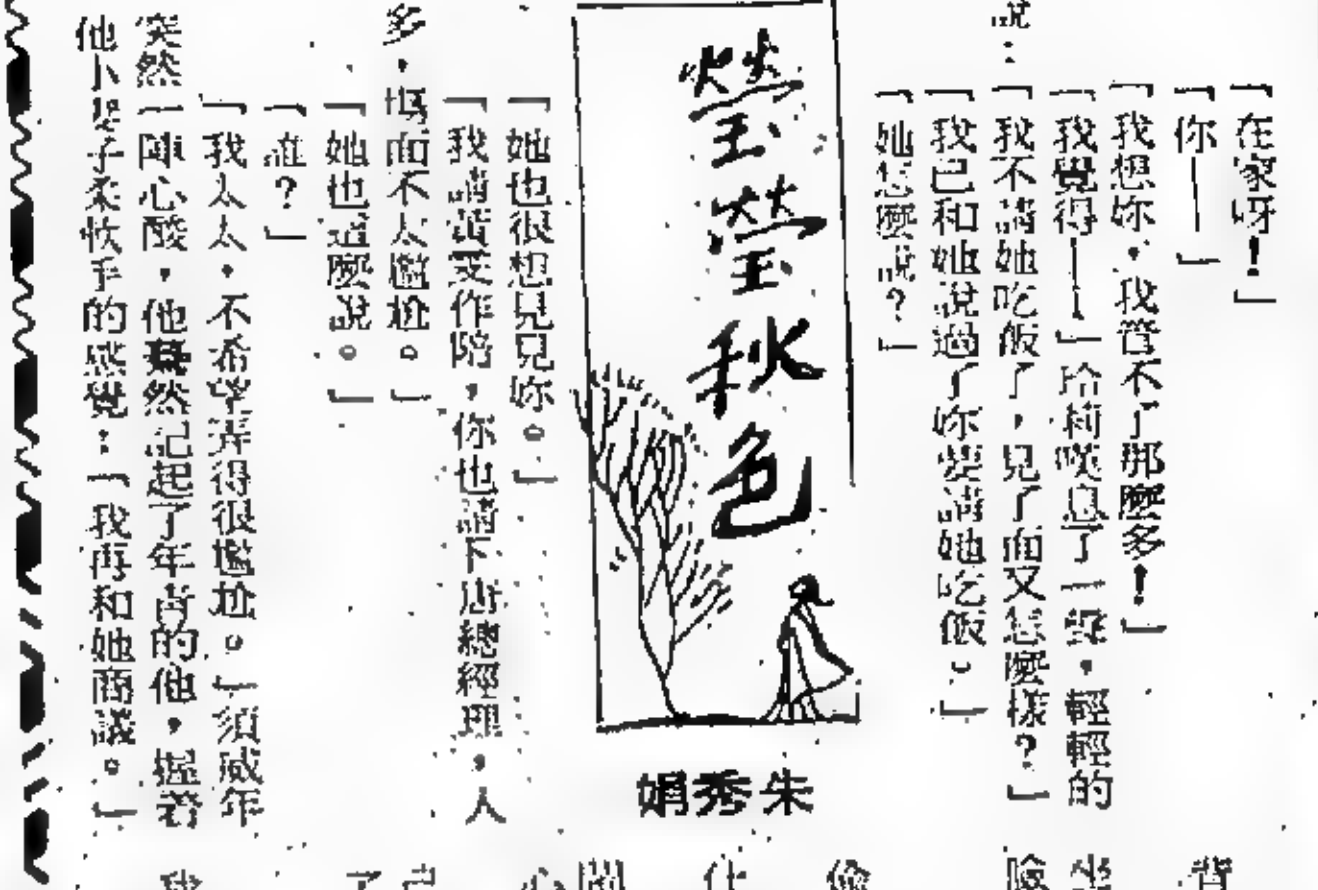 「在家呀！」
「你——」
「我想妳，我管不了那麼多！」
「我覺得——」玲莉嘆息了一聲，輕輕的
說：「我不請她吃飯了，見了面又怎麼樣？」
「我已和她說過了妳要請她吃飯。」
「她怎麼說？」
瑩瑩秋色
朱秀娟
「她也很想見見妳。」
「我請黃 作陪，你也請下唐總經理，人
多，場面不太尷尬。」
「她也這麼說。」
「誰？」
「我太太，不希望弄得很尷尬。」須咸年
突然一陣心酸，他驀然記起了年青的他，握着
他小妻子柔軟手的感覺：「我再和她商議。」